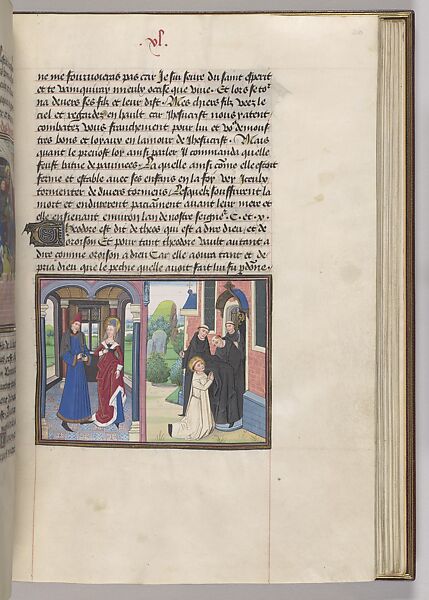 .vl.
ne me fourvoieras pas car Je sui seure du saint esperit
et te vainquiray mieulx occise que vive. Et lors se tor
na devers ses filz et leur dist. Mes chiers filz veez le
ciel et regardez en hault car Ihesucrist nous y atent
combatez vous franchement pour lui et vo⁹ demoustres
bons et loyaux en lamour de Ihesucrist. Mais
quant le prevost loy ainsi parler Il commanda quelle
feust batue de paumees. La quelle ainsi come elle estoit
ferme et estable avec ses enfans en la foy
tormenter de divers tormens. Lesquelz souffrirent la
mort et endurerent paciament avant leur mere et
elle ensievant environ lan de nostre seign⁹. C. et .x.
Theodore est dit de theos qui est a dire dieu et de
oroison Et pour tant theodore vault autant a
dire comme oroison a dieu Car elle aoura tant et de
pria dieu que le pechie quelle avoit fait lui fu p̄done.